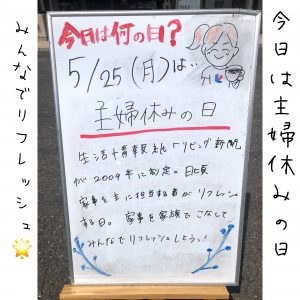 今日は主婦休みの日
みんなでリフレッシュ🌟
今日は何の日?
5/25(月)は…
主婦休みの日
生活情報紙「リビング新聞
が2009年に制定。日頃
家事を主に担当する者がリフレッシュ
する日。家事を家族でこなして
みんなでリフレッシュしよう♪